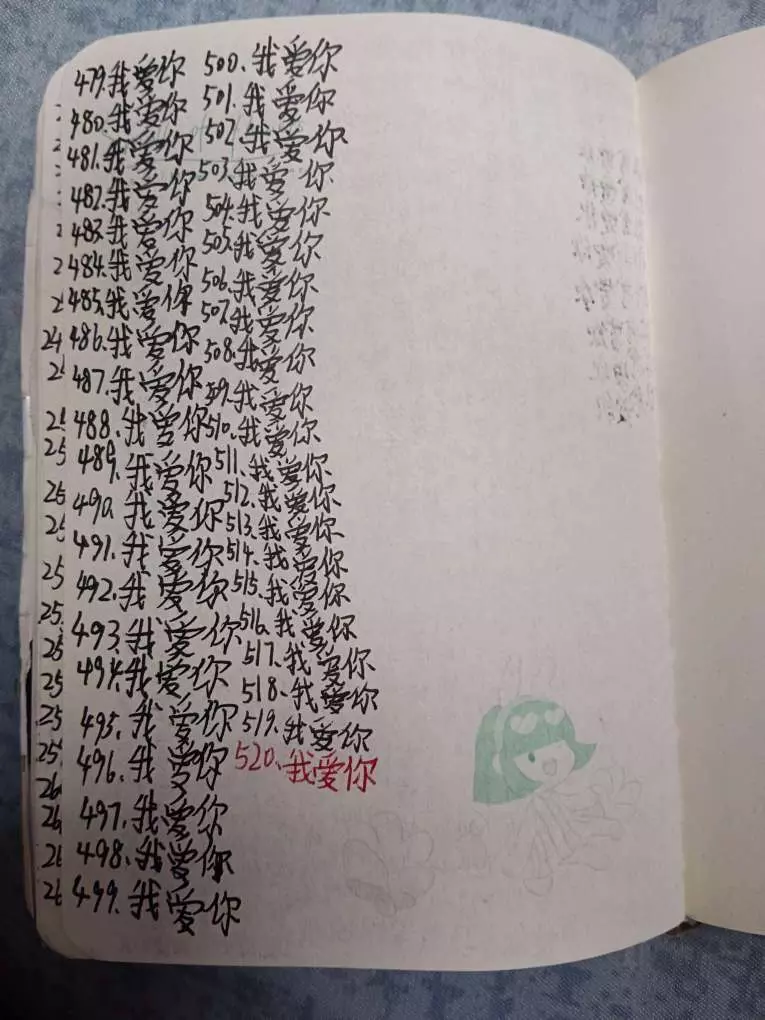 479.我爱你
480.我爱你
481.我爱你
482.我爱你
483.我爱你
484.我爱你
485.我爱你
486.我爱你
487.我爱你
488.我爱你
489.我爱你
490.我爱你
491.我爱你
492.我爱你
493.我爱你
494.我爱你
495.我爱你
496.我爱你
497.我爱你
498.我爱你
499.我爱你
500.我爱你
501.我爱你
502.我爱你
503.我爱你
504.我爱你
505.我爱你
506.我爱你
507.我爱你
508.我爱你
509.我爱你
510.我爱你
511.我爱你
512.我爱你
513.我爱你
514.我爱你
515.我爱你
516.我爱你
517.我爱你
518.我爱你
519.我爱你
520.我爱你